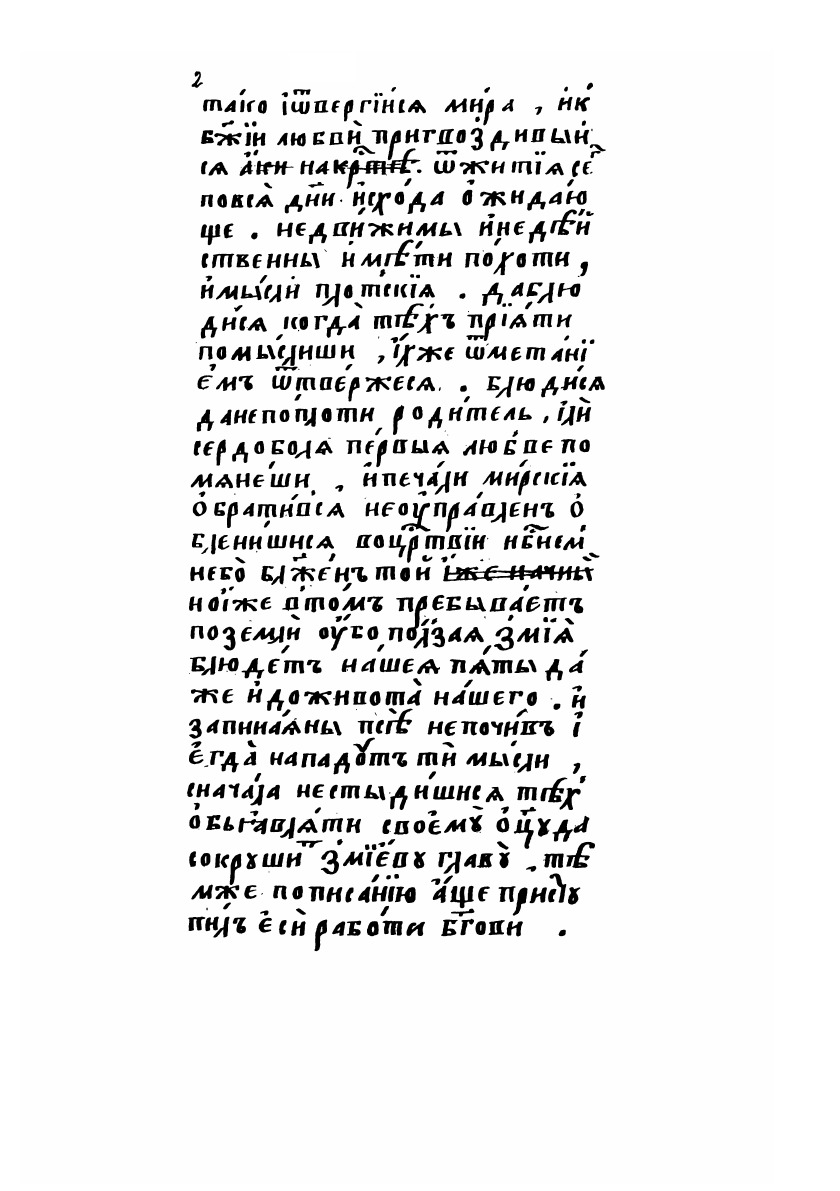 2
та́ко іѿве́ргїйся ми́ра , и҆к
бж҃їи любвѝ пригвозди́выи
ся а҆́ки на кр҃тѣ . ѿ жи́тїя се҃
повся̀ дн҃и и҆схо́да о҆жида́ю
ще . недви́жимы и҆недѣ́й
ственны и҆мѣ́ти по́хоти ,
и҆мы́сли пло́тскїя . даблю
ди́ся когда̀ тѣ́хъ прїя́ти
помы́слиши , и҆́хже ѿмета́нї
емъ ѿтве́ржеся . блюди́ся
данепопло́ти роди́тель , и҆лѝ
сердобо́ля пе́рвыя лю́бве по
мяне́ши , и҆печа́ли ми́рскїя
о҆брати́вся неоу҆пра́вленъ о҆
бле́нишися воцр҃твїи нб҃нсем
небо̀ бл҃же́нъ той і҆́же начны̀
но і҆́же втомъ пребыва́етъ
поземлѝ оу҆́бо по́лзая змїя̀
блюде́тъ нашея пя́ты да́
же и҆доживота̀ на́шего . и҆
запина́яны псѣ̀ непочи́въ і҆
е҆гда̀ нападутъ тѝ мы́сли ,
снача́ла нестыди́шися тѣ́х
о҆бьявля́ти своему̀ о҆ц҃у да
сокруши́тъ змїе́ву главу̀ , тѣ́
мже пописа́нїю а҆́ще присту
пи́лъ е҆сѝ рабо́ти бг҃ови .